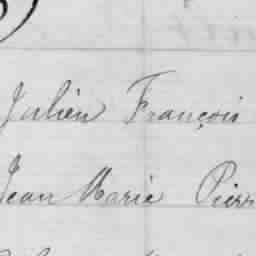 Julien François
Jean Marie Pierr